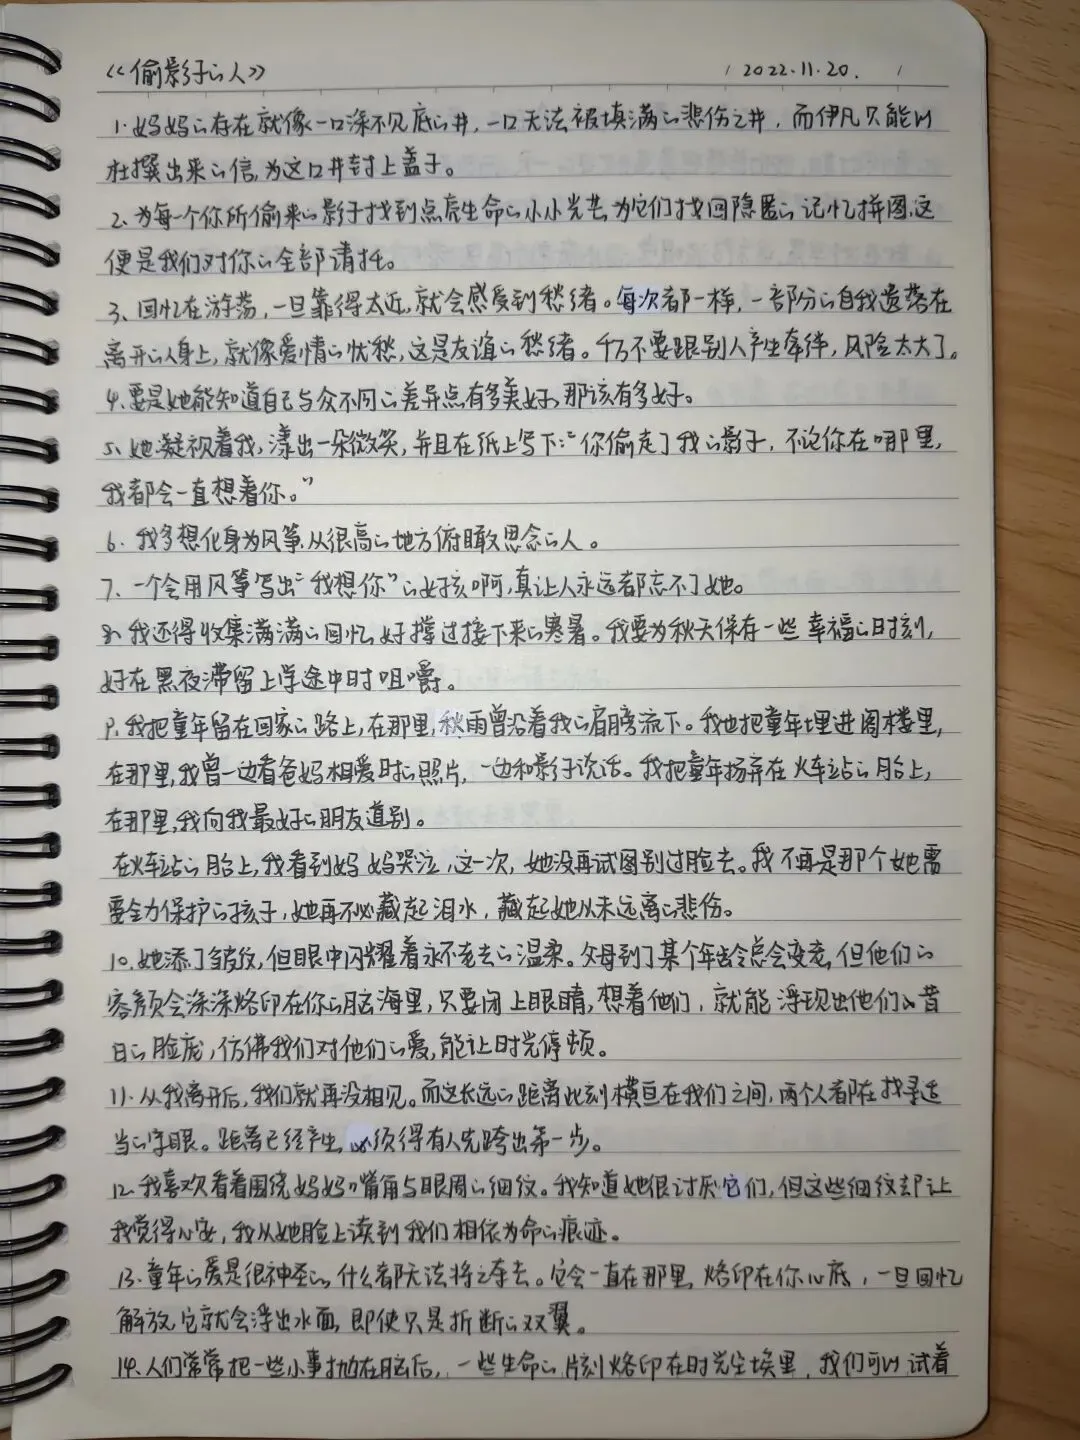 《偷影子的人》 2022.11.20.
1.妈妈的存在就像一口深不见底的井,一口无法被填满的悲伤之井,而伊凡只能以
杜撰出来的信,为这口井封上盖子。
2.为每一个你所偷来的影子找到点亮生命的小小光芒,为它们找回隐匿的记忆拼图,这
便是我们对你的全部请托。
3、回忆在游荡,一旦靠得太近,就会感受到愁绪。每次都一样,一部分的自我遗落在
离开的人身上,就像爱情的忧愁,这是友谊的愁绪。千万不要跟别人产生牵绊,风险太大了。
4.要是她能知道自己与众不同的差异点有多美好,那该有多好。
5、她凝视着我,漾出一朵微笑,并且在纸上写下:“你偷走了我的影子,不论你在哪里,
我都会一直想着你。”
6.我多想化身为风筝,从很高的地方俯瞰思念的人。
7、一个会用风筝写出“我想你”的女孩啊,真让人永远都忘不了她。
8、我还得收集满满的回忆,好撑过接下来的寒暑。我要为秋天保存一些幸福的时刻,
好在黑夜滞留上学途中时咀嚼。
9.我把童年留在回家的路上,在那里,秋雨曾沿着我的肩膀流下。我也把童年埋进阁楼里,
在那里,我曾一边看爸妈相爱时的照片,一边和影子说话。我把童年扬弃在火车站的月台上,
在那里,我向我最好的朋友道别。
在火车站的月台上,我看到妈妈哭泣,这一次,她没再试图别过脸去。我不再是那个她需
要全力保护的孩子,她再不必藏起泪水,藏起她从未远离的悲伤。
10.她添了皱纹,但眼中闪耀着永不老去的温柔。父母到了某个年龄总会变老,但他们的
容颜会深深烙印在你的脑海里,只要闭上眼睛,想着他们,就能浮现出他们的昔
日的脸庞,仿佛我们对他们的爱,能让时光停顿。
11.从我离开后,我们就再没相见。而这长远的距离此刻横亘在我们之间,两个人都在找寻适
当的字眼。距离已经产生,必须得有人先跨出第一步。
12.我喜欢看着围绕妈妈的嘴角与眼周的细纹。我知道她很讨厌它们,但这些细纹却让
我觉得心安,我从她脸上读到我们相依为命的痕迹。
13.童年的爱是很神圣的,什么都无法将之夺去。它会一直在那里,烙印在你心底,一旦回忆
解放,它就会浮出水面,即使只是折断的双翼。
14.人们常常把一些小事抛在脑后,一些生命的片刻烙印在时光尘埃里,我们可以试着